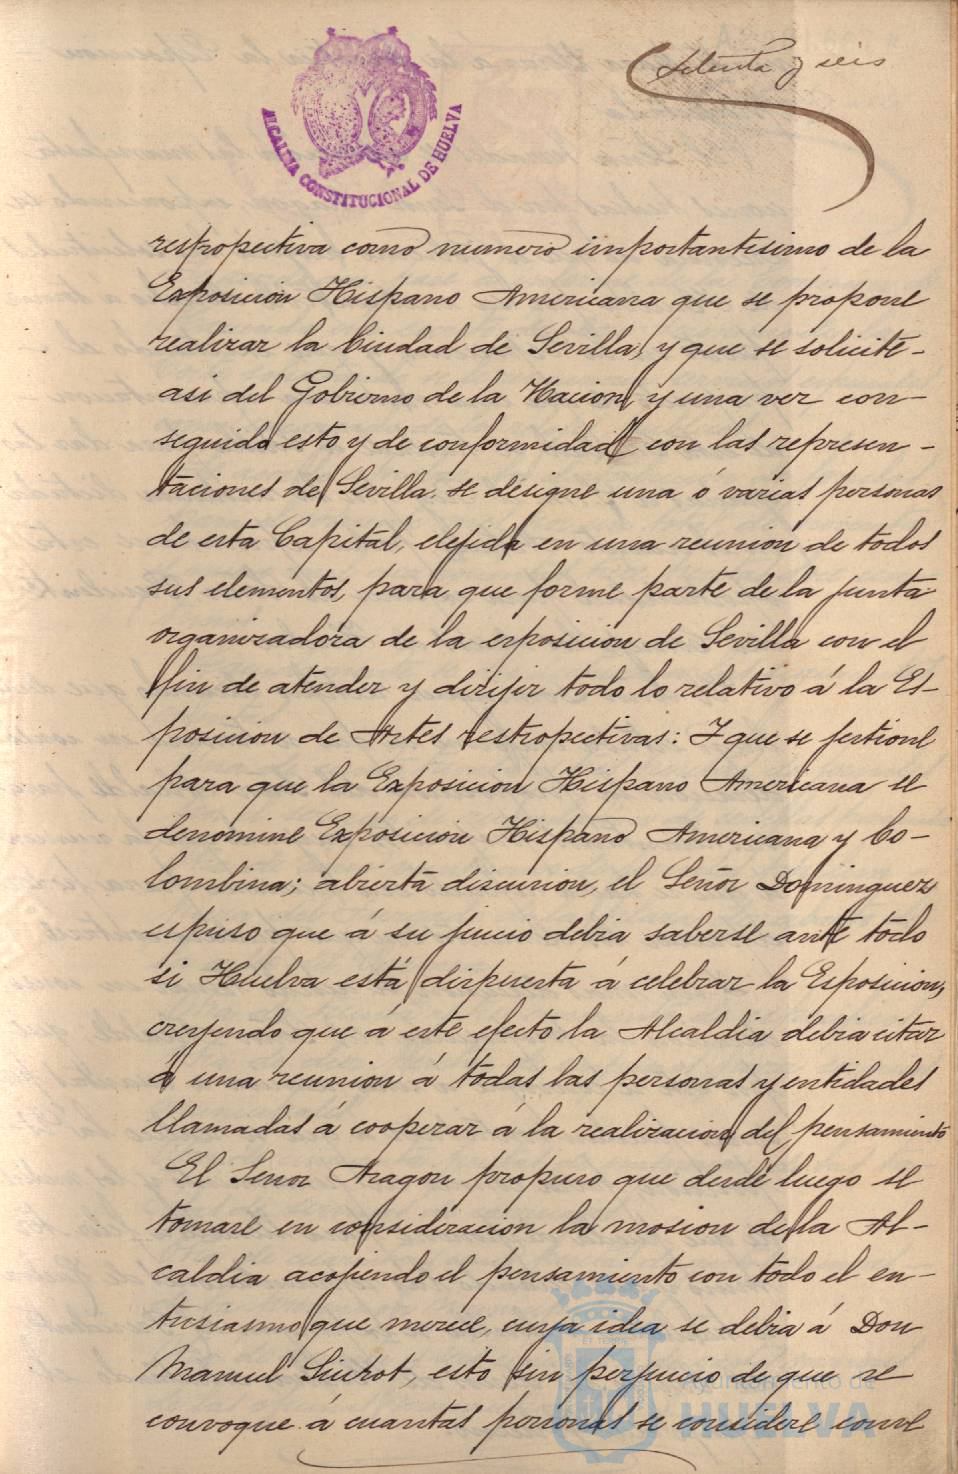 Setenta y seis
ALCALDIA CONSTITUCIONAL DE HUELVA
restropectiva como numero importantisimo de la
Exposicion Hispano Americana que se propone
realizar la Ciudad de Sevilla, y que se solicite-
asi del Gobierno de la Nacion, y una vez con-
seguido esto y de conformidad con las represen-
taciones de Sevilla se designe una ó varias personas
de esta Capital, elejida en una reunion de todos
sus elementos, para que forme parte de la junta
organizadora de la esposicion de Sevilla con el
fin de atender y dirijir todo lo relativo á la Es-
posicion de Artes restropectivas: Y que se jestione
para que la Exposicion Hispano Americana se
denomine Exposición Hispano Americana y Co-
lombina; abierta discusion, el Señor Dominguez
espuso que á su juicio debia saberse ante todo
si Huelva está dispuesta á celebrar la Esposicion,
creyendo que á este efecto la Alcaldia debia citar
á una reunion á todas las personas y entidades
llamadas á cooperar á la realizacion del pensamiento
El Señor Aragon propuso que desde luego se
tomase en consideracion la mosion de la Al-
caldia acojiendo el pensamiento con todo el en-
tusiasmo que merece, cuya idea se debia á Don
Manuel Siurot, esto sin perjuicio de que se
convoque á cuantas personas se considere conve
Ayuntamiento de
HUELVA